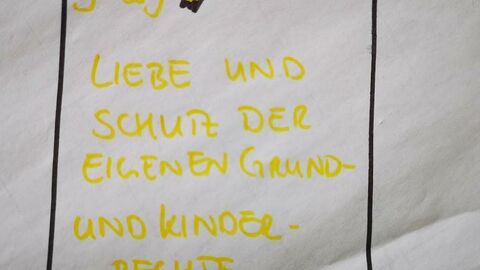 LIEBE UND
SCHUTZ DER
EIGENEN GRUND-
UND KINDER-
RECHTE